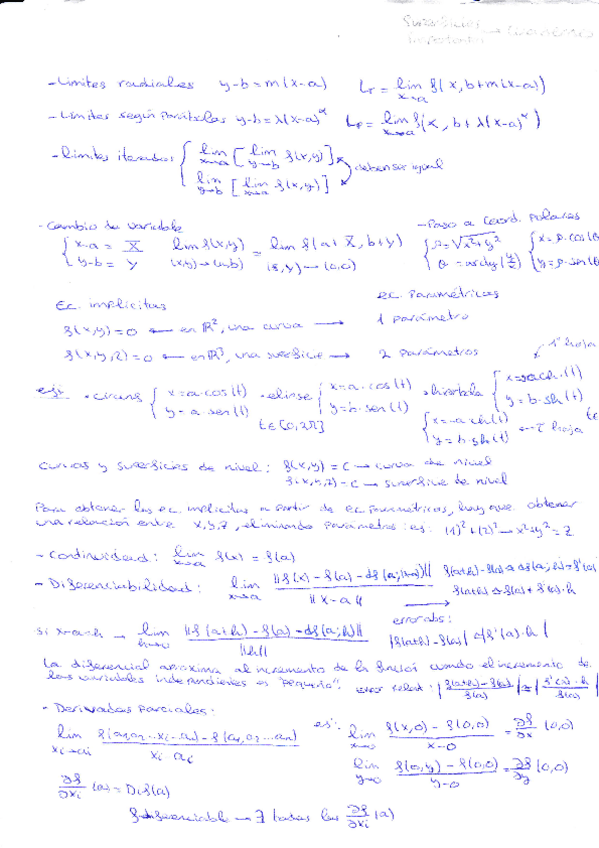 Superficies importantes → cuadernos
- Límites radiales y-b=m(x-a) Lr = lim x→a f(x, b+m(x-a))
- Límites según parábolas y-b=λ(x-a)^α Lp = lim x→a f(x, b+λ(x-a)^α)
- Límites iterados { lim x→a [ lim y→b f(x,y) ]
lim y→b [ lim x→a f(x,y) ] deben ser igual
- Cambio de variable - Paso a coord. polares
{ x-a = X lim f(x,y) = lim f(a+X, b+Y) { ρ=√x²+y² { x=ρ·cos(θ)
y-b = Y (x,y)→(a,b) (X,Y)→(0,0) θ=arctg(y/x) y=ρ·sen(θ)
Ec. implícitas ec. paramétricas
f(x,y)=0 ← en ℝ², una curva → 1 parámetro
f(x,y,z)=0 ← en ℝ³, una superficie → 2 parámetros
1ª hoja
ejs: · circunf { x=a·cos(t) · elipse { x=a·cos(t) · hipérbola { x=a·ch(t)
y=a·sen(t) y=b·sen(t) y=b·sh(t)
t∈[0,2π] { x=-a·ch(t)
y=b·sh(t) hoja
curvas y superficies de nivel: f(x,y)=c → curva de nivel
f(x,y,z)=c → superficie de nivel
Para obtener las ec. implícitas a partir de ec. paramétricas, hay que obtener
una relación entre x,y,z, eliminando parámetros: ej: (1)²+(2)² → x²+y²=z
- Continuidad: lim x→a f(x) = f(a)
- Diferenciabilidad: lim x→a ||f(x)-f(a)-df(a;x-a)|| / ||x-a|| f(a+h)-f(a)≈df(a;h)=f'(a)·h
f(a+h)≈f(a)+f'(a)·h
error abs:
si x=a+h → lim h→0 ||f(a+h)-f(a)-df(a;h)|| / ||h|| |f(a+h)-f(a)|≈|f'(a)·h|
La diferencial aproxima al incremento de la función cuando el incremento de
las variables independientes es "pequeño". error relat: |f(a+h)-f(a) / f(a)|≈|f'(a)·h / f(a)|
- Derivadas parciales:
lim xi→ai f(a1,a2...xi...an)-f(a1,a2...an) / xi-ai ej: lim x→0 f(x,0)-f(0,0) / x-0 = ∂f/∂x (0,0)
lim y→0 f(0,y)-f(0,0) / y-0 = ∂f/∂y (0,0)
∂f/∂xi (a) = Dif(a)
f diferenciable → ∃ todas las ∂f/∂xi (a)